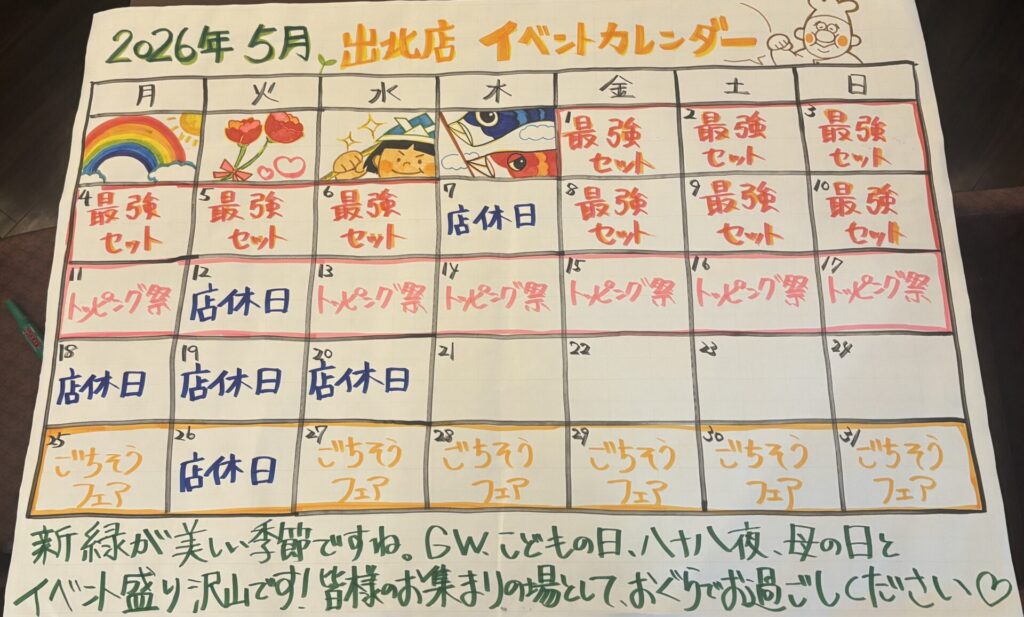 2026年5月 出北店 イベントカレンダー
月 火 水 木 金 土 日
1 最強セット 2 最強セット 3 最強セット
4 最強セット 5 最強セット 6 最強セット 7 店休日 8 最強セット 9 最強セット 10 最強セット
11 トッピング祭 12 店休日 13 トッピング祭 14 トッピング祭 15 トッピング祭 16 トッピング祭 17 トッピング祭
18 店休日 19 店休日 20 店休日 21 22 23 24
25 ごちそうフェア 26 店休日 27 ごちそうフェア 28 ごちそうフェア 29 ごちそうフェア 30 ごちそうフェア 31 ごちそうフェア
新緑が美しい季節ですね。GW、こどもの日、八十八夜、母の日と
イベント盛り沢山です!皆様のお集まりの場として、おぐらでお過ごしください♡